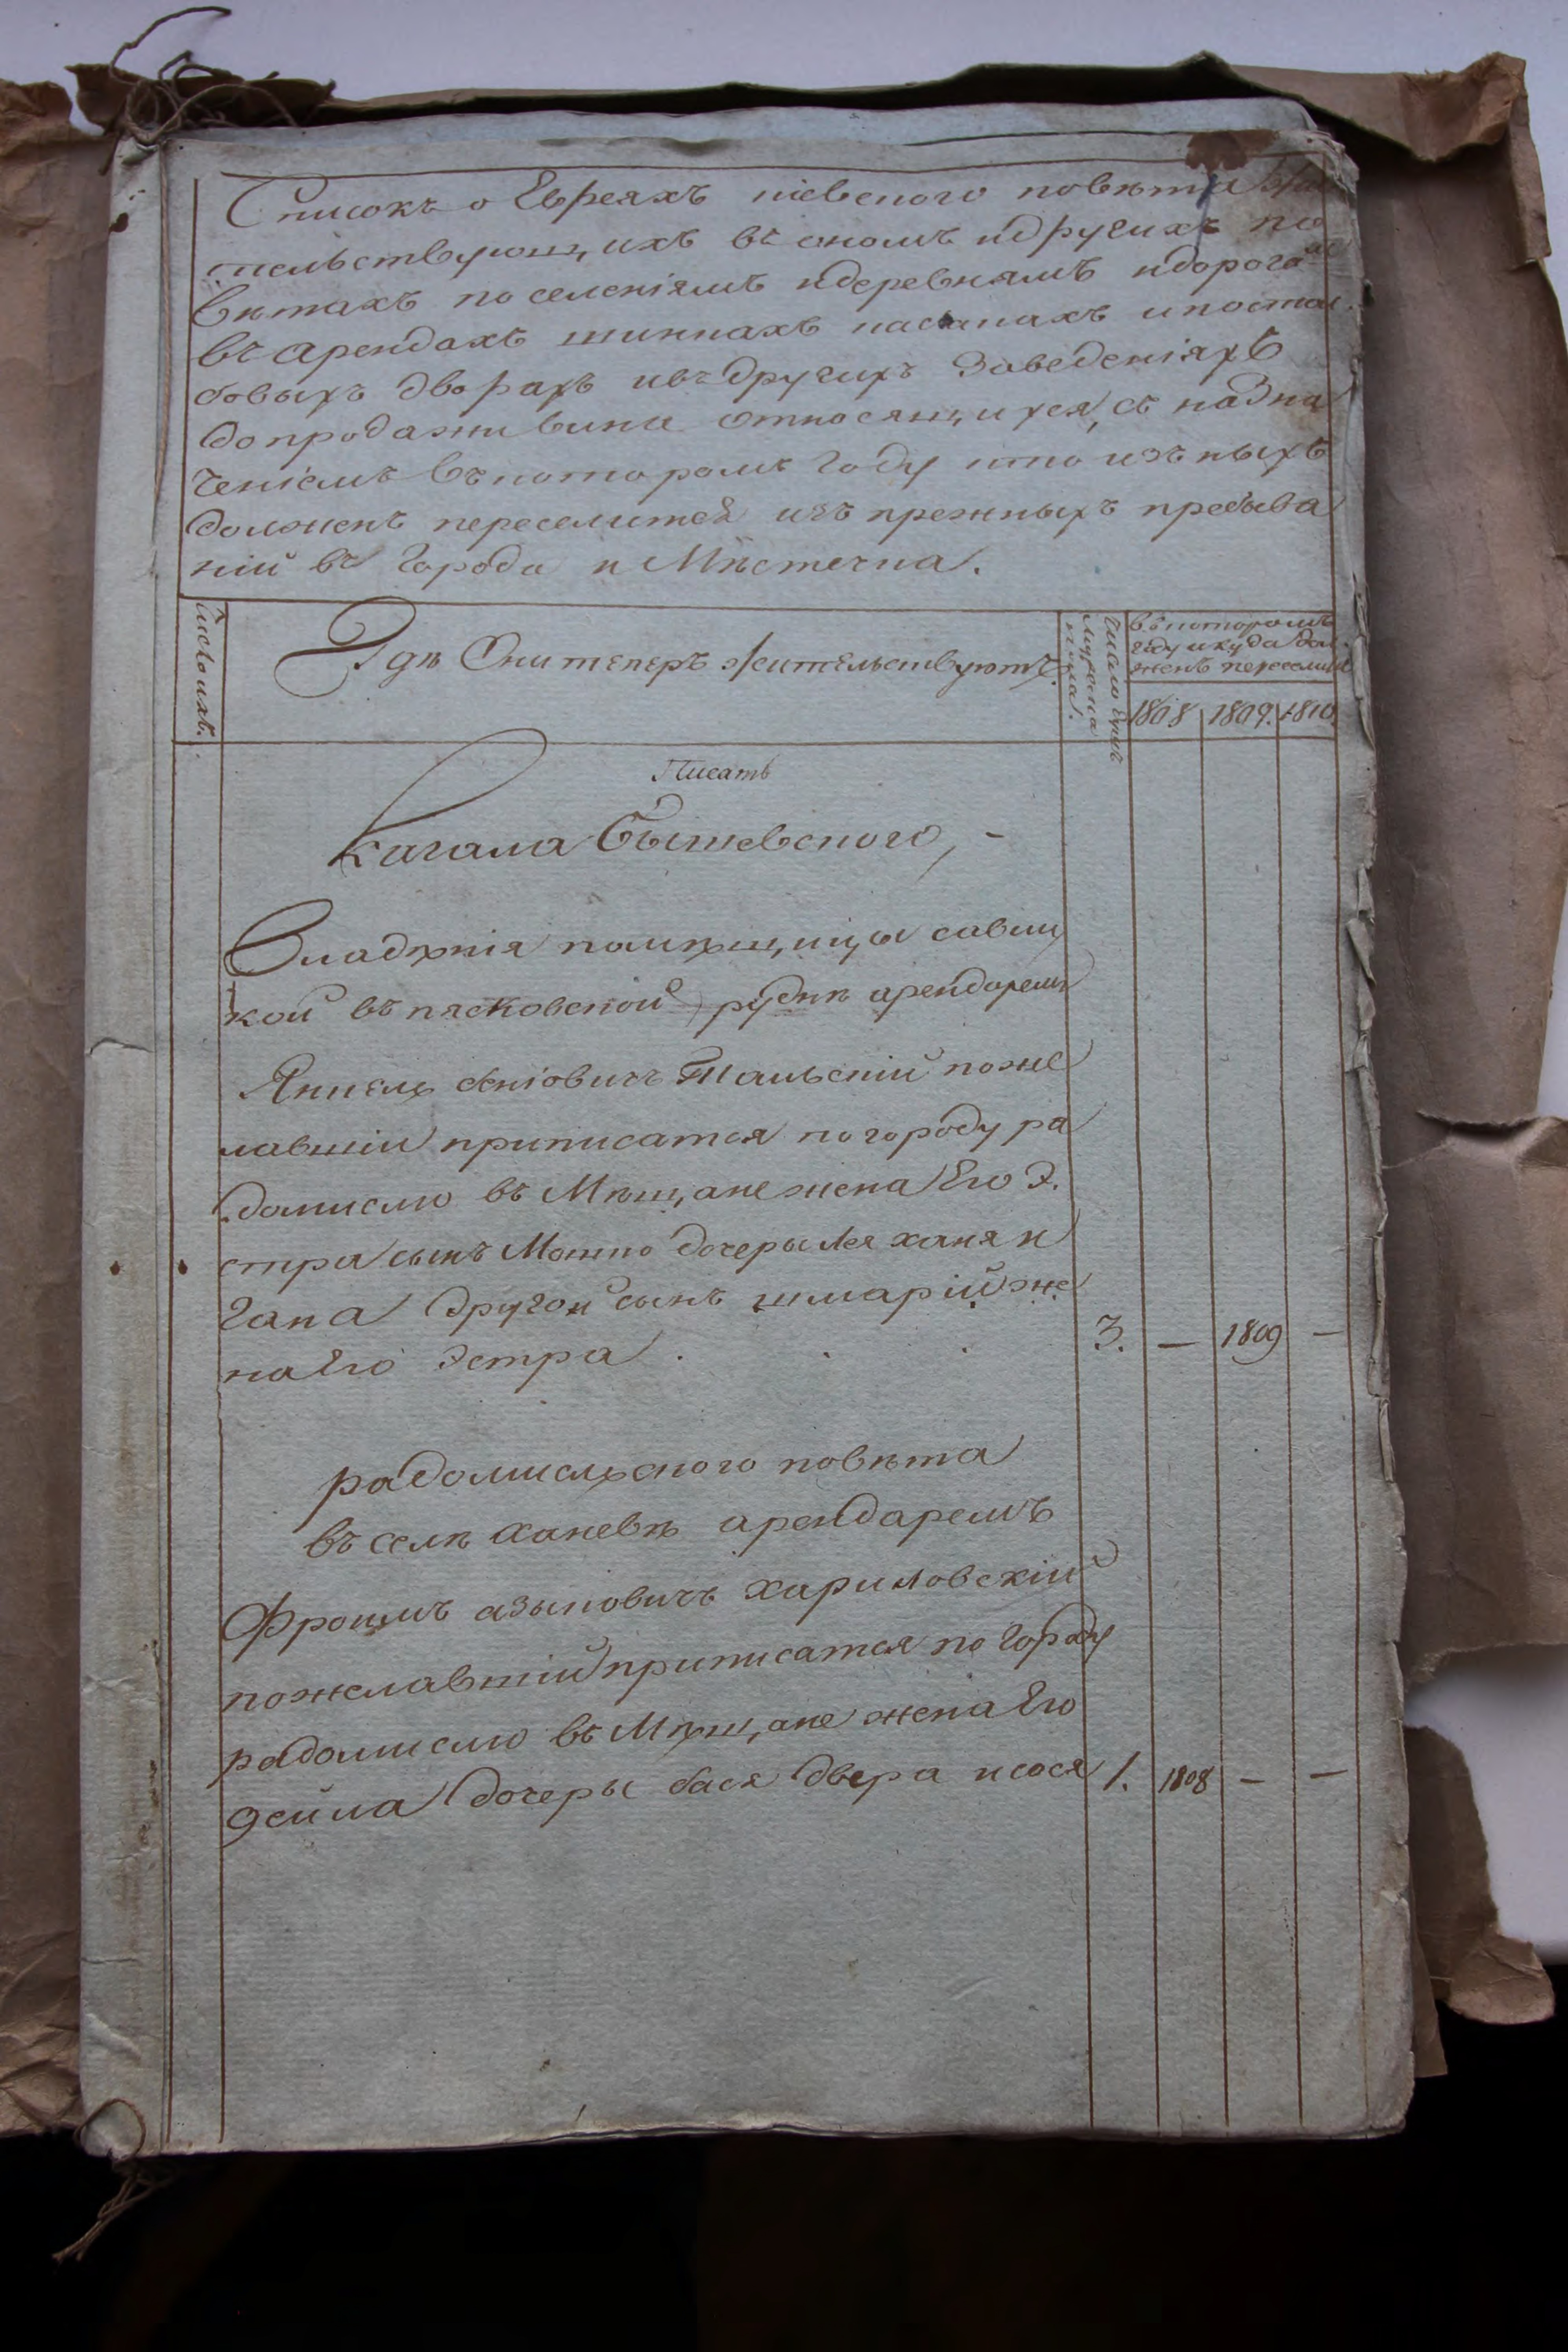 Списокъ о Евреяхъ кіевского повѣта жи
тельствующихъ въ ономъ и другихъ по
вѣтахъ по селеніямъ и деревнямъ и дорогам
въ арендахъ шинкахъ кабакахъ и постоя
лыхъ дворахъ и въ другихъ заведеніяхъ
до продажи вина относящихся, съ назна
ченіемъ въ которомъ году кто изъ ныхъ
долженъ переселится изъ прежныхъ пребыва
ній въ города и Мѣстечка.
Число ихъ.
Гдѣ Они теперъ жительствуютъ.
Число душъ
Мужеска
пола.
въ которомъ
году и куда дол
женъ переселит
1808 1809. 1810.
Писать
Кагала Бышевского,
Владѣнія помѣщицы савиц
кой въ пясковской рудкѣ арендаремъ
Янкель Тальскій поже
лавшій приписатся по городу ра
домислю въ Мѣщане жена Его Э.
стра сынъ Мошко дочеры Лея ханя и
гапа другой сынъ шмарій же
на Его Эстра.
3. — 1809 —
радомислского повѣта
въ селѣ Ханевѣ арендаремъ
Фроимъ азыковичъ Хариловскій
пожелавшій приписатся по городу
радомислю въ Мѣщане жена Его
дочеры бася двера и сося
1. 1808 — —